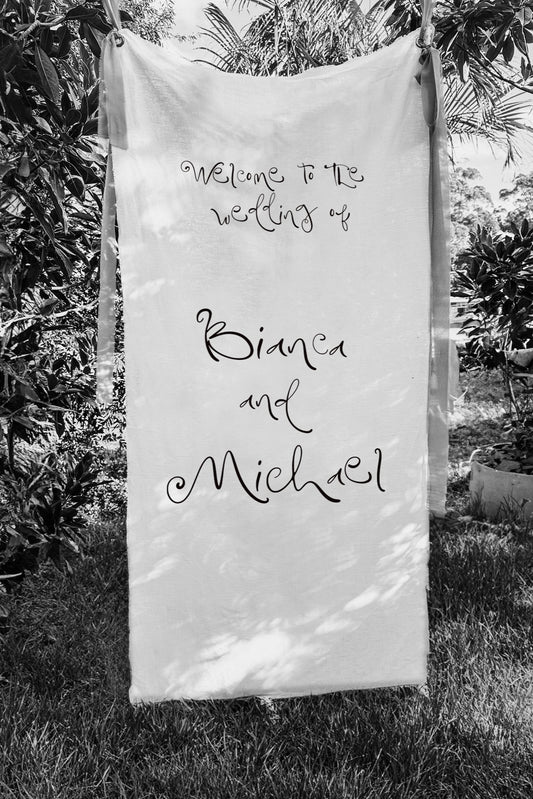 Welcome to the
wedding of
Bianca
and
Michael